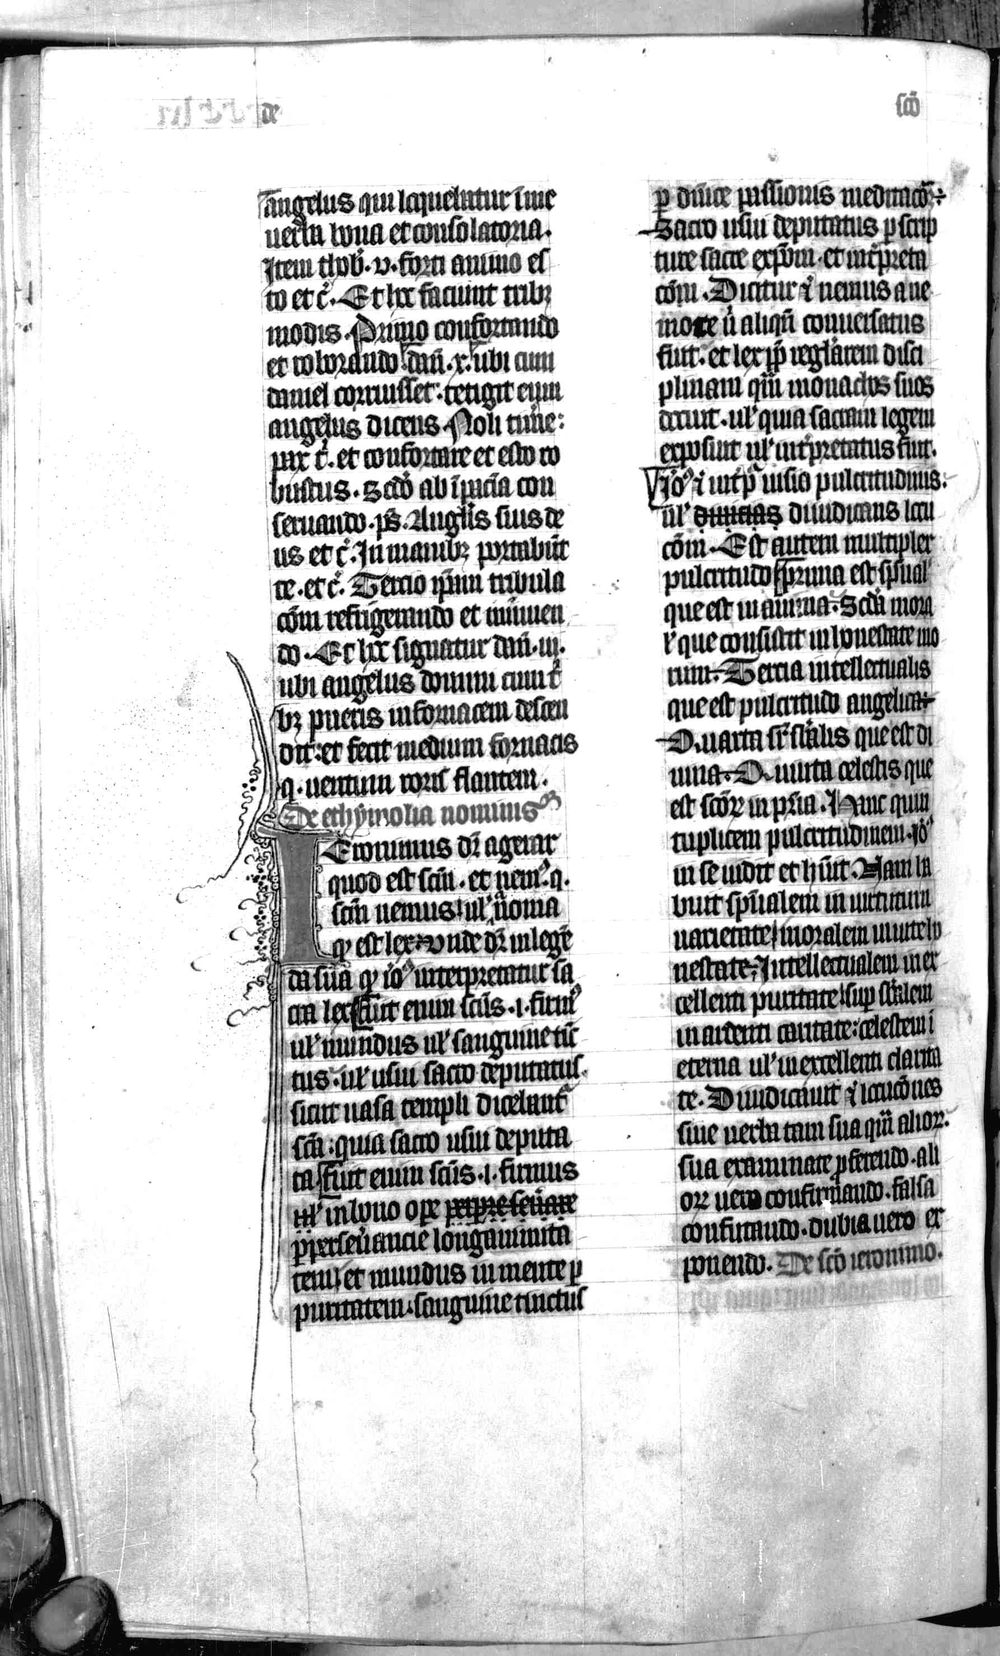 de
scō
angelus qui loquebatur ī me
uerba bona et consolatoria.
Item thob'. v. forti animo es
to et c̄. Et hec faciunt tribꝫ
modis. Primo confortando
et roborando dan̄. x. ubi cum
daniel corruisset. tetigit eum
angelus dicens Noli time:
pax t'. et confortare et esto ro
bustus. Scdo ab īpicia con
seruando. ps. Anglis suis de
us et c̄. In manibꝫ portabūt
te. et c̄. Tercio ip̄am tribula
cōm refrigerando et minuen
do. Et hec signatur dan̄. iij.
ubi angelus domini cum t'
bꝫ pueris in fornacem descen
dit: et fecit medium fornacis
q. uentum roris flantem.
De ethymolia nominis
Ieronimus dr̄ a gerar
quod est scm̄. et nem9. q.
scm̄ nemus ul' a noma
qꝫ est lex. Vnde dr̄ in legē
da sua qꝫ io9 interpretatur sa
cra lex. fuit enim scūs. i. firm9
ul' mundus ul' sanguine tīc
tus. ul' usui sacro deputatus.
sicut uasa templi dicebant'
scā. quia sacro usui deputa
ta. fuit enim scūs. i. firmus
in bono ope
p perseūancie longanimita
tem et mundus in mente p
puritatem. sanguine tinctus
p dn̄ice passionis meditacōm
Sacro usui deputatus p scrip
ture sacre expōm. et int'preta
cōm. Dicitur et nemus a ne
more ū aliqn̄ conuersatus
fuit. et lex pp̄ reglarem disci
plinam qm̄ monachos suos
docuit. ul' quia sacram legem
exposuit ul' int'pretatus fuit.
Io9 et int'p uisio pulcritudinis.
ul' diiudicans locu
cōm. Est autem multiplex
pulcritudo. prima est sp̄ual'
que est in anima. Scda mora
l' que consistit in honestate mo
rum. Tercia intellectualis
que est pulcritudo angelica
Quarta sr̄ stālis que est di
uina. Quinta celestis que
est scōꝝ in pria. Hanc quin
tuplicem pulcritudinem. io9
in se uidit et hūit. Nam ha
buit sp̄ualem in uirtutum
uarietate. moralem in uite ho
nestate. Intellectualem in ex
cellenti puritate. sup stālem
in ardenti caritate. celestem ī
eterna ul' in excellenti clarita
te. Diiudicauit et locucōnes
siue uerba tam sua qm̄ alioꝝ.
sua examinate pferendo. ali
oꝝ uera confirmando. falsa
confutando. dubia uero ex
ponendo. De scō ieronimo.